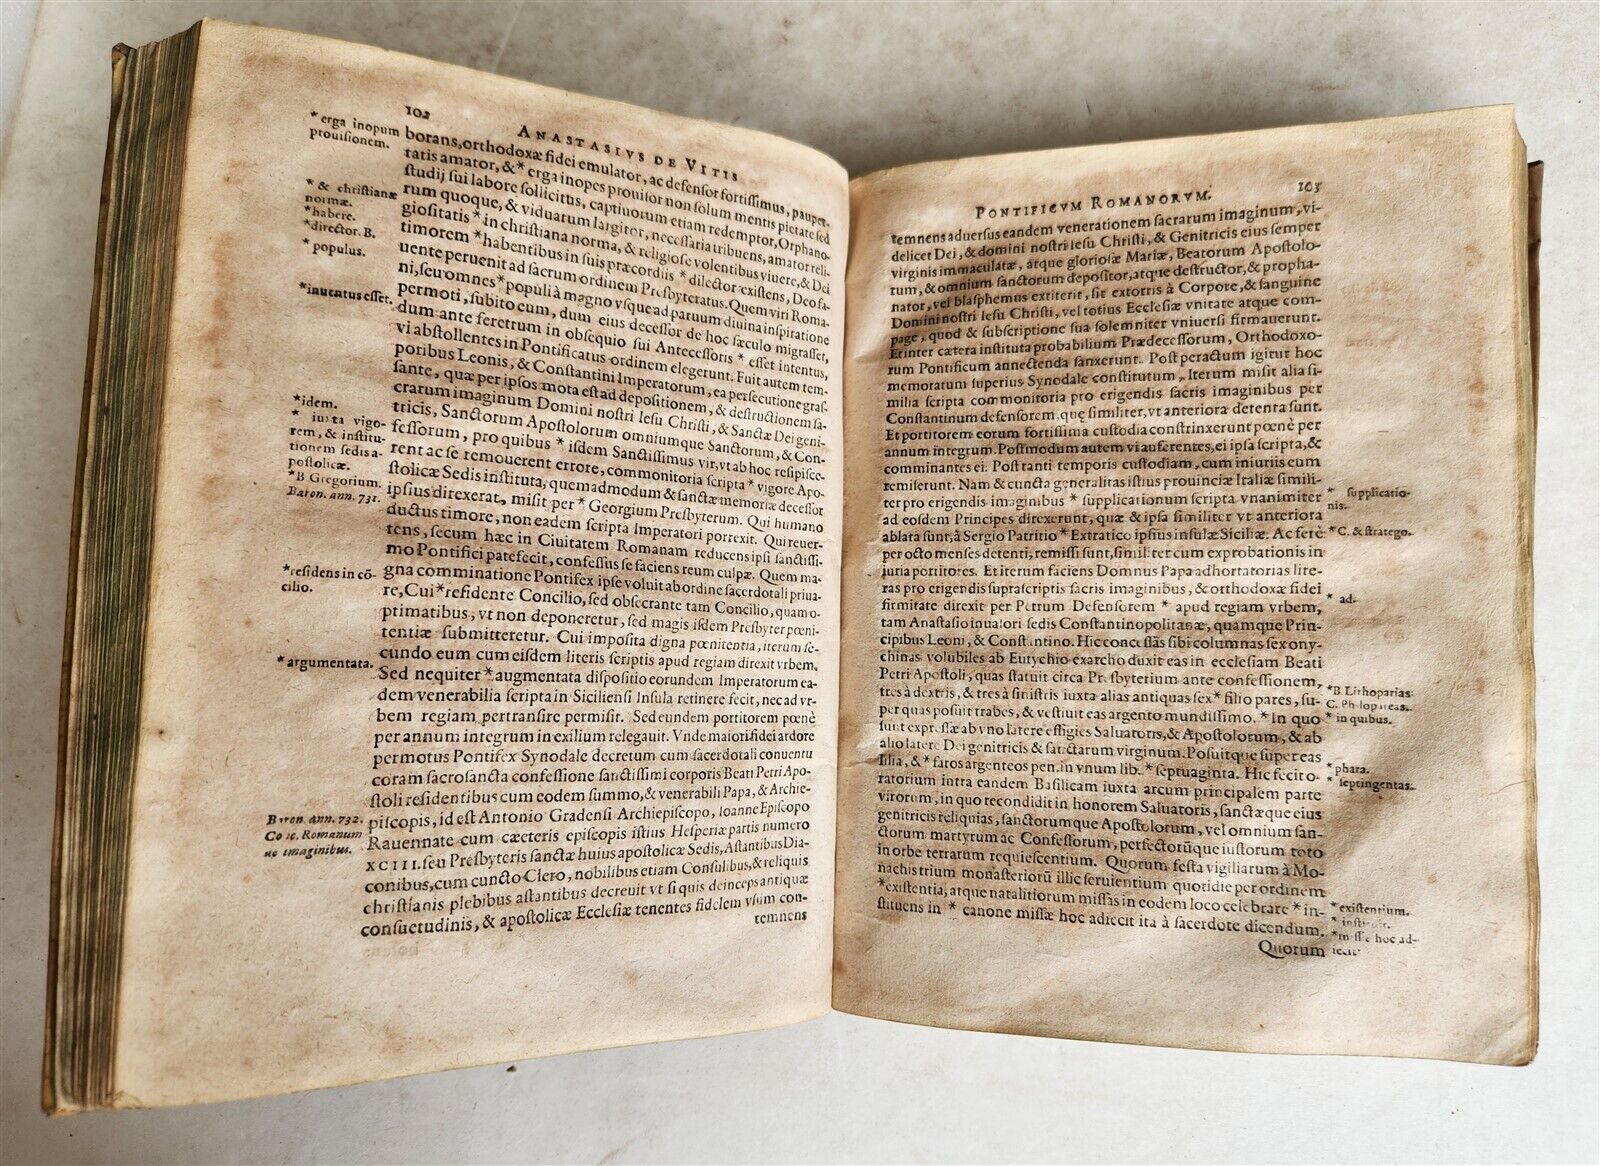 102
ANASTASIVS DE VITIS
* erga inopum
prouisionem.
* & christianæ
normæ.
*habere.
*director. B.
* populus.
*inuentus esset.
*idem.
* iuxta vigo-
rem, & institu-
tionem sedis a-
postolicæ.
*B Gregorium.
Baron. ann. 731.
*residens in cō-
cilio.
*argumentata.
Baron. ann. 732.
Conc. Romanum
de imaginibus.
borans, orthodoxæ fidei emulator, ac defensor fortissimus, pauper-
tatis amator, &* erga inopes prouisor non solum mentis pietate sed
studij sui labore sollicitus, captiuorum etiam redemptor, Orphano-
rum quoque, & viduarum largitor, necessaria tribuens, amator reli-
giositatis * in christiana norma, & religiose volentibus viuere, & Dei
timorem *habentibus in suis præcordiis * dilector existens, Deo fa-
uente peruenit ad sacrum ordinem Presbyteratus. Quem viri Roma-
ni, seu omnes* populi à magno vsque ad paruum diuina inspiratione
permoti, subito eum, dum eius decessor de hoc sæculo migrasset,
dum ante feretrum in obsequio sui Antecessoris * esset intentus,
vi abstollentes in Pontificatus ordinem elegerunt. Fuit autem tem-
poribus Leonis, & Constantini Imperatorum, ea persecutione gras-
sante, quæ per ipsos mota est ad depositionem, & destructionem sa-
crarum imaginum Domini nostri Iesu Christi, & Sanctæ Dei geni-
tricis, Sanctorum Apostolorum omniumque Sanctorum, & Con-
fessorum, pro quibus * isdem Sanctissimus vir, vt ab hoc resipisce-
rent ac se remouerent errore, commonitoria scripta * vigore Apo-
stolicæ Sedis instituta, quemadmodum & sanctæ memoriæ decessor
ipsius direxerat, misit per * Georgium Presbyterum. Qui humano
ductus timore, non eadem scripta Imperatori porrexit. Qui reuer-
tens, secum hæc in Ciuitatem Romanam reducens ipsi sanctissi-
mo Pontifici patefecit, confessus se faciens reum culpæ. Quem ma-
gna comminatione Pontifex ipse voluit ab ordine sacerdotali priua-
re, Cui*residente Concilio, sed obsecrante tam Concilio, quam o-
ptimatibus, vt non deponeretur, sed magis isdem Presbyter pœni-
tentiæ submitteretur. Cui imposita digna pœnitentia, iterum se-
cundo eum cum eisdem literis scriptis apud regiam direxit vrbem.
Sed nequiter *augmentata dispositio eorundem Imperatorum ea-
dem venerabilia scripta in Siciliensi Insula retinere fecit, nec ad vr-
bem regiam pertransire permisit. Sed eundem portitorem pœnè
per annum integrum in exilium relegauit. Vnde maiori fidei ardore
permotus Pontifex Synodale decretum cum sacerdotali conuentu
coram sacrosancta confessione sanctissimi corporis Beati Petri Apo-
stoli residentibus cum eodem summo, & venerabili Papa, & Archie-
piscopis, id est Antonio Gradensi Archiepiscopo, Ioanne Episcopo
Rauennate cum cæteris episcopis istius Hesperiæ partis numero
XCIII. seu Presbyteris sanctæ huius apostolicæ Sedis, Astantibus Dia-
conibus, cum cuncto Clero, nobilibus etiam Consulibus, & reliquis
christianis plebibus astantibus decreuit vt si quis deinceps antiquæ
consuetudinis, & apostolicæ Ecclesiæ tenentes fidelem vsum con-
temnens
PONTIFICVM ROMANORVM.
103
temnens aduersus eandem venerationem sacrarum imaginum, vi-
delicet Dei, & domini nostri Iesu Christi, & Genitricis eius semper
virginis immaculatæ, atque gloriosæ Mariæ, Beatorum Apostolo-
rum, & omnium sanctorum depositor, atque destructor, & propha-
nator, vel blasphemus extiterit, sit extorris à Corpore, & sanguine
Domini nostri Iesu Christi, vel totius Ecclesiæ vnitate atque com-
page, quod & subscriptione sua solemniter vniuersi firmauerunt.
Et inter cætera instituta probabilium Prædecessorum, Orthodoxo-
rum Pontificum annectenda sanxerunt. Post peractum igitur hoc
memoratum superius Synodale constitutum, Iterum misit alia si-
milia scripta commonitoria pro erigendis sacris imaginibus per
Constantinum defensorem, quę similiter, vt anteriora detenta sunt.
Et portitorem eorum fortissima custodia constrinxerunt pœnè per
annum integrum. Postmodum autem vi auferentes, ei ipsa scripta, &
comminantes ei. Post tanti temporis custodiam, cum iniuriis eum
remiserunt. Nam & cuncta generalitas istius prouinciæ Italiæ simili-
ter pro erigendis imaginibus * supplicationum scripta vnanimiter
ad eosdem Principes direxerunt, quæ & ipsa similiter vt anteriora
ablata sunt, à Sergio Patritio * Extratico ipsius insulæ Siciliæ. Ac ferè
per octo menses detenti, remissi sunt, similiter cum exprobationis in
iuria portitores. Et iterum faciens Domnus Papa adhortatorias lite-
ras pro erigendis suprascriptis sacris imaginibus, & orthodoxæ fidei
firmitate direxit per Petrum Defensorem * apud regiam vrbem,
tam Anastasio inuasori sedis Constantinopolitanæ, quamque Prin-
cipibus Leoni, & Constantino. Hic concessas sibi columnas sex ony-
chinas volubiles ab Eutychio exarcho duxit eas in ecclesiam Beati
Petri Apostoli, quas statuit circa Presbyterium ante confessionem,
tres à dextris, & tres à sinistris iuxta alias antiquas sex* filio pares, su-
per quas posuit trabes, & vestiuit eas argento mundissimo. * In quo
sunt expressæ ab vno latere effigies Saluatoris, & Apostolorum, & ab
alio latere Dei genitricis & sanctarum virginum. Posuitque super eas
lilia, &* faros argenteos pen. in vnum lib. * septuaginta. Hic fecit o-
ratorium intra eandem Basilicam iuxta arcum principalem parte
virorum, in quo recondidit in honorem Saluatoris, sanctæque eius
genitricis reliquias, sanctorumque Apostolorum, vel omnium san-
ctorum martyrum ac Confessorum, perfectorūque iustorum toto
in orbe terrarum requiescentium. Quorum festa vigiliarum à Mo-
nachis trium monasteriorū illic seruientium quotidie per ordinem
*existentia, atque natalitiorum missas in eodem loco celebrare * in-
stituens in * canone missæ hoc adiecit ita à sacerdote dicendum.
Quorum
* supplicatio-
nis.
* C. & stratego.
* ad.
*B Lithoparias
C. Philopareas.
* in quibus.
* phara.
* septingentas.
*existentium.
* instituit.
*missæ hoc ad-
iecit